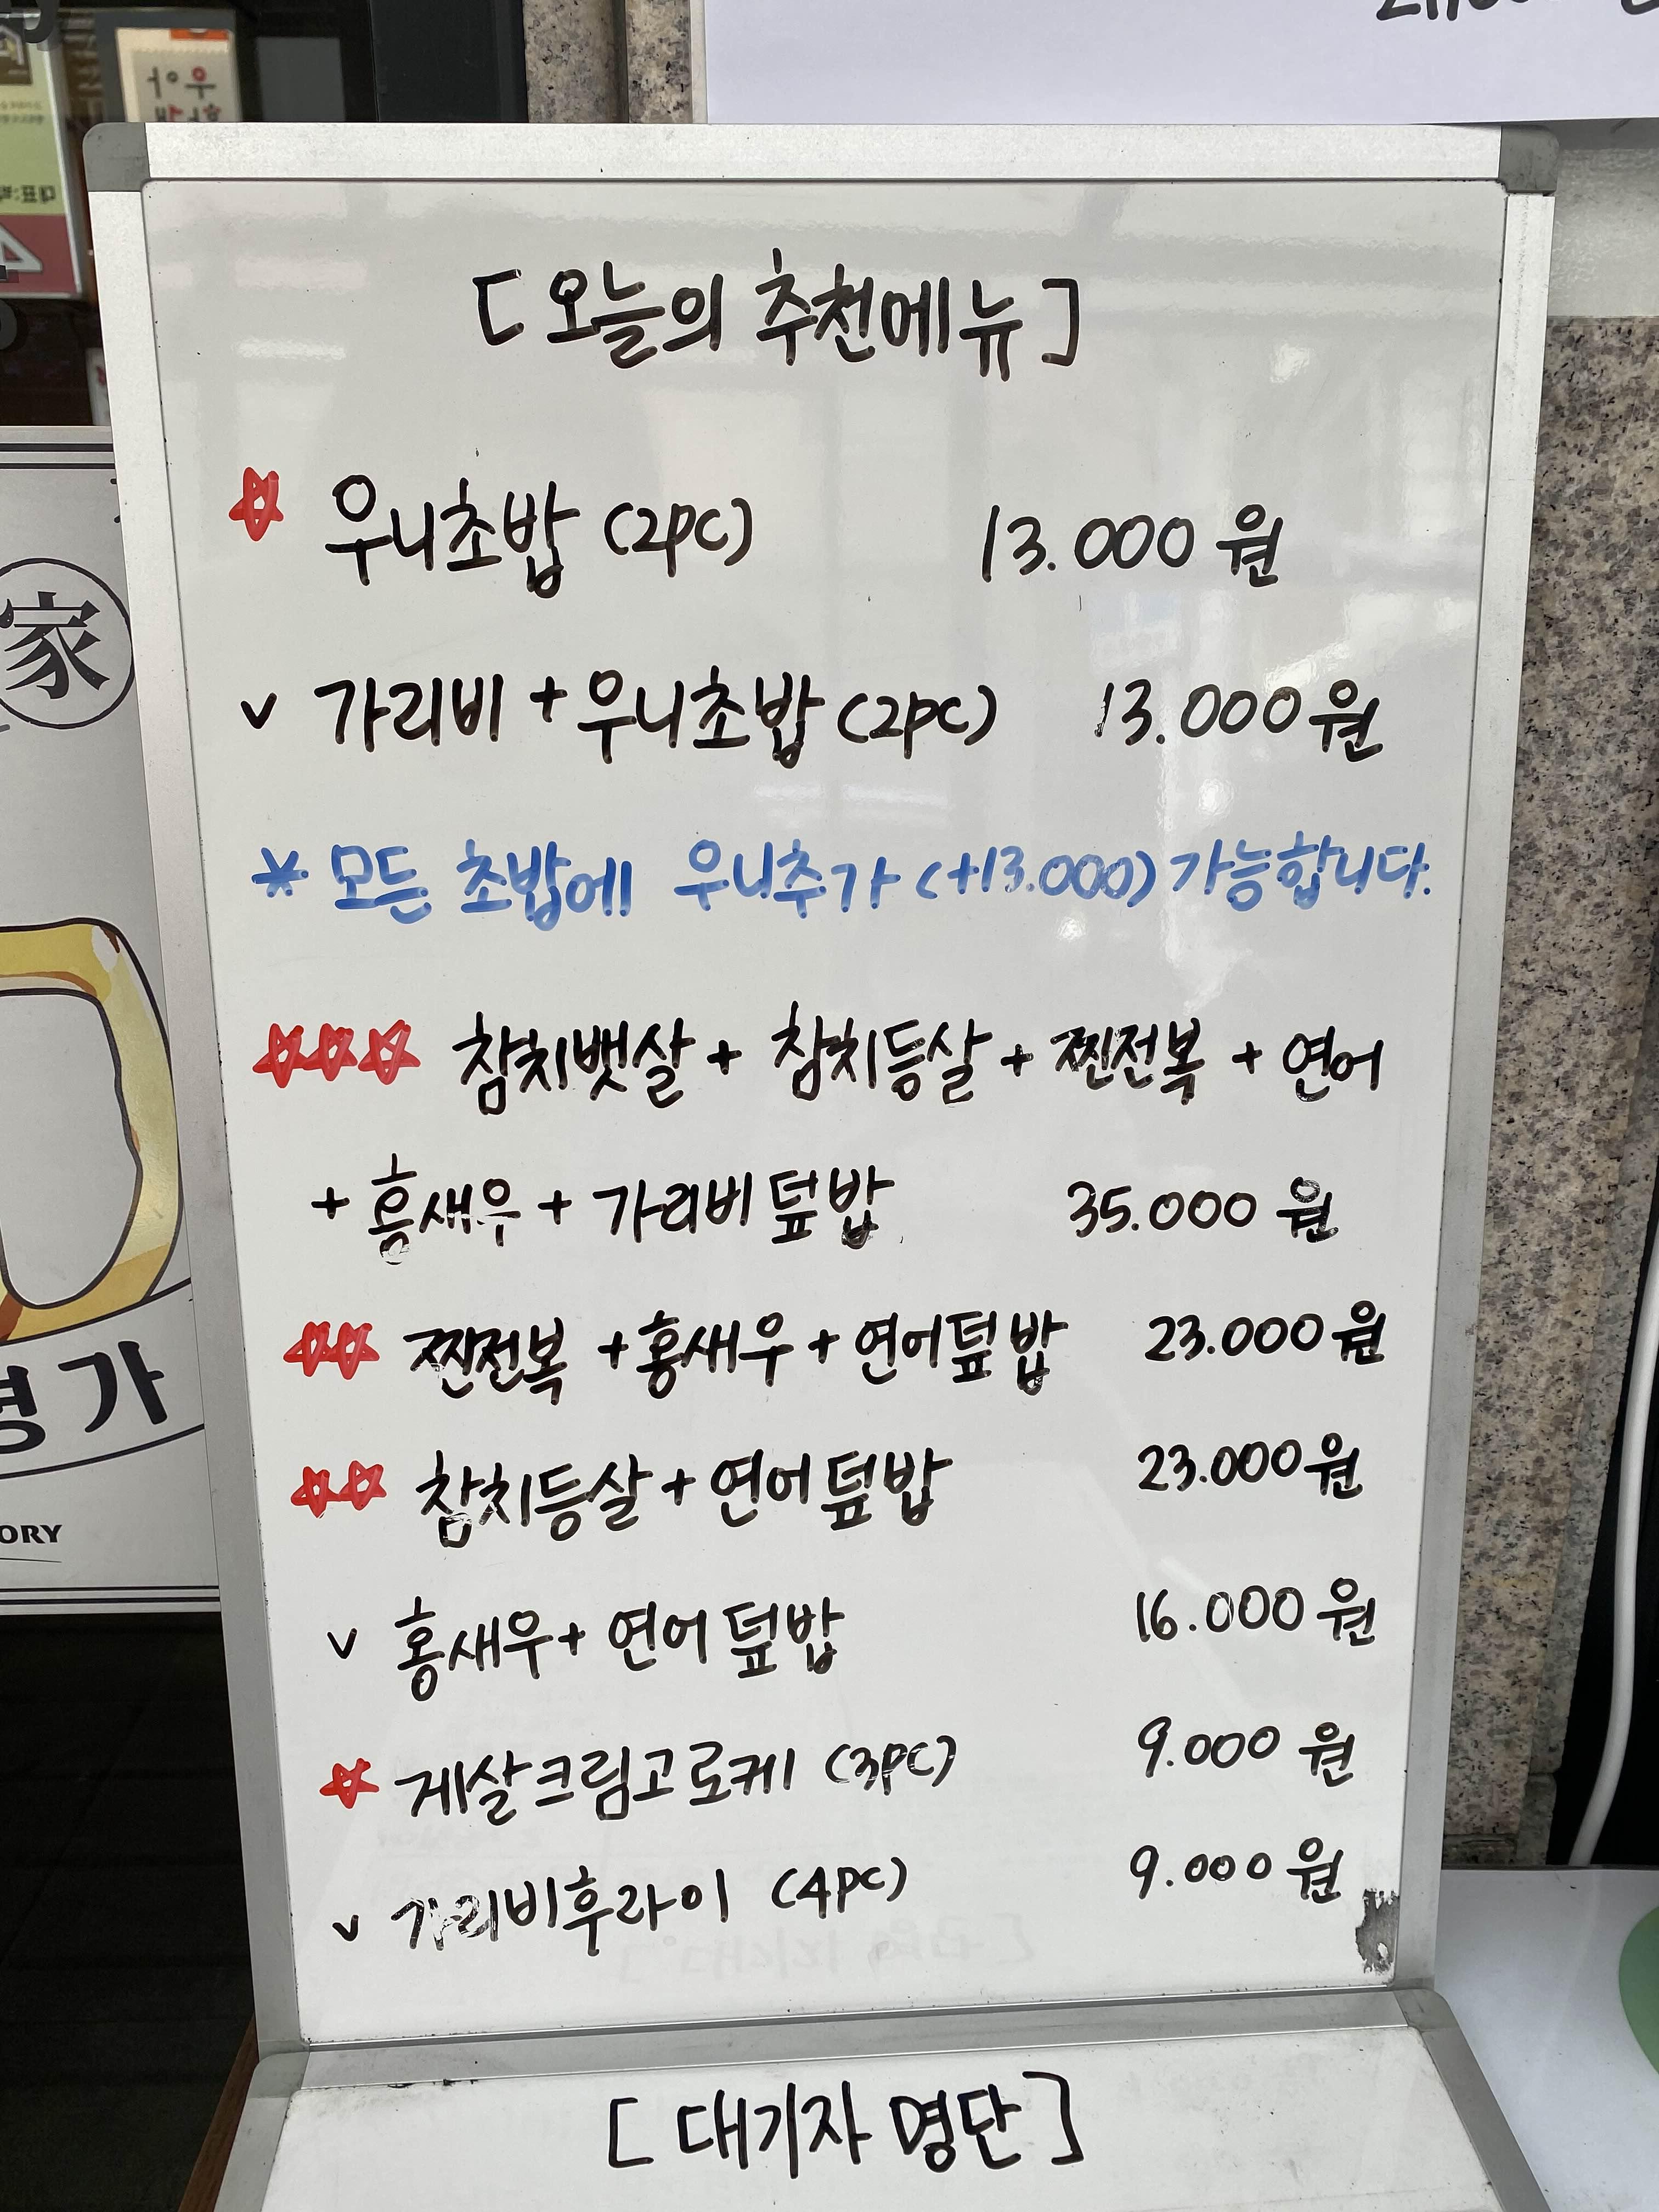 [오늘의 추천메뉴]
☆ 우니초밥 (2pc) 13.000 원
v 가리비 + 우니초밥 (2pc) 13.000원
* 모든 초밥에 우니추가 (+13.000) 가능합니다.
☆☆☆ 참치뱃살 + 참치등살 + 찐전복 + 연어
+ 홍새우 + 가리비 덮밥 35.000 원
☆☆ 찐전복 + 홍새우 + 연어덮밥 23.000원
☆☆ 참치등살 + 연어덮밥 23.000원
v 홍새우 + 연어덮밥 16.000 원
☆ 게살크림고로케 (3pc) 9.000 원
v 가리비후라이 (4pc) 9.000 원
[대기자 명단]
家
명가
ORY